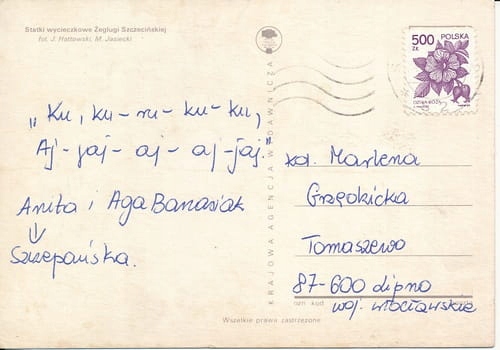 Statki wycieczkowe Żeglugi Szczecińskiej
fot. J. Hattowski, M. Jasiecki
„Ku, ku-ru-ku-ku,
Aj-jaj-aj-aj-jaj."
Anita i Aga Banasiak
Szczepańska.
KRAJOWA AGENCJA WYDAWNICZA
500
ZŁ
POLSKA
DZIKA RÓŻA
kol. Marlena
Grzębicka
Tomaszewo
87-600 Lipno
ozn kod
woj. włocławskie
Wszelkie prawa zastrzeżone